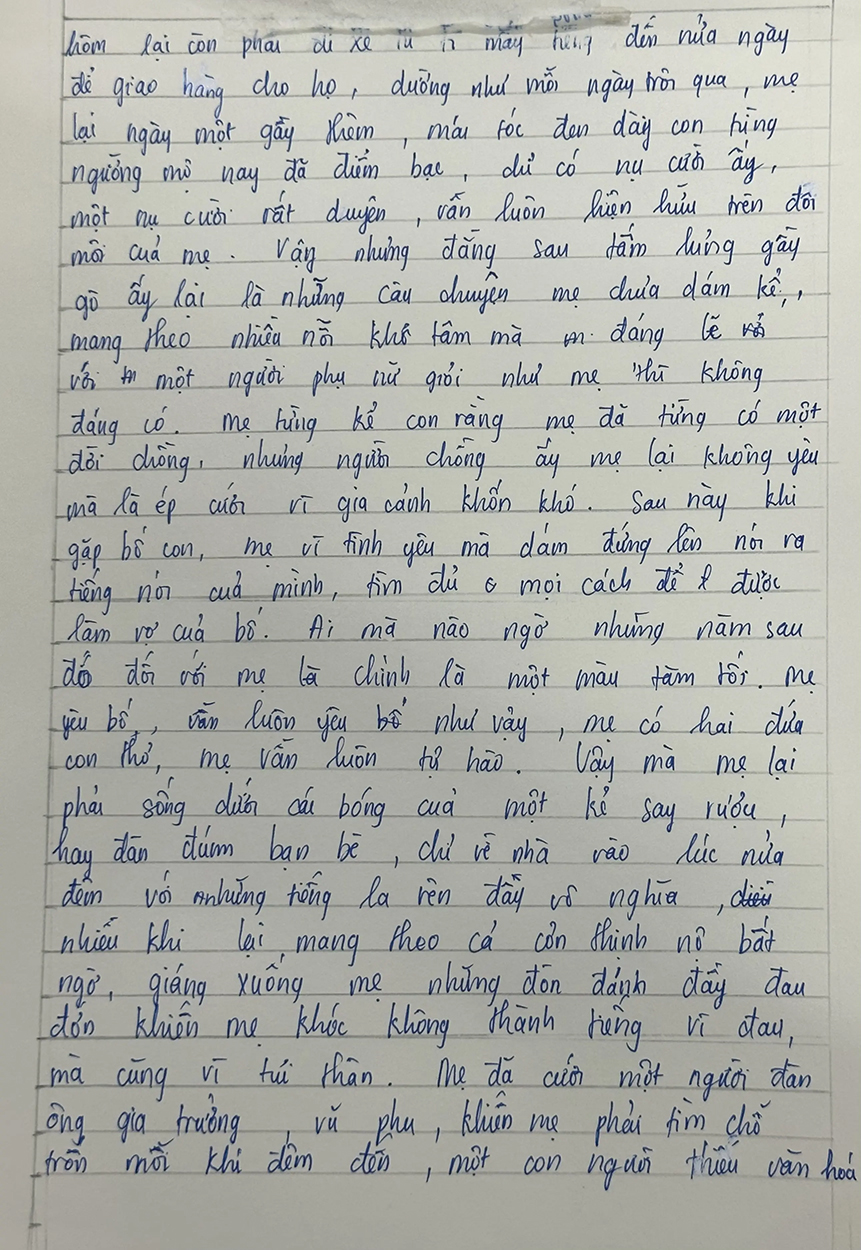 hôm lại còn phải đi xe từ mấy tiếng đến nửa ngày
để giao hàng cho họ, dường như mỗi ngày trôi qua, mẹ
lại ngày một gầy thêm, mái tóc đen dày con từng
ngưỡng mộ nay đã điểm bạc, chỉ có nụ cười ấy,
một nụ cười rất duyên, vẫn luôn hiện hữu trên đôi
môi của mẹ. Vậy nhưng đằng sau tấm lưng gầy
gò ấy lại là những câu chuyện mẹ chưa dám kể,
mang theo nhiều nỗi khổ tâm mà đáng lẽ
với một người phụ nữ giỏi như mẹ thì không
đáng có. Mẹ từng kể con rằng mẹ đã từng có một
đời chồng, nhưng người chồng ấy mẹ lại không yêu
mà là ép cưới vì gia cảnh khốn khó. Sau này khi
gặp bố con, mẹ vì tình yêu mà dám đứng lên nói ra
tiếng nói của mình, tìm đủ mọi cách để được
làm vợ của bố. Ai mà nào ngờ những năm sau
đó đối với mẹ chính là một màu tăm tối. Mẹ
yêu bố, vẫn luôn yêu bố như vậy, mẹ có hai đứa
con thơ, mẹ vẫn luôn tự hào. Vậy mà mẹ lại
phải sống dưới cái bóng của một kẻ say rượu,
hay đàn đúm bạn bè, chỉ về nhà vào lúc nửa
đêm với những tiếng la rên đầy vô nghĩa,
nhiều khi lại mang theo cả cơn thịnh nộ bất
ngờ, giáng xuống mẹ những đòn đánh đầy đau
đớn khiến mẹ khóc không thành tiếng vì đau,
mà cũng vì tủi thân. Mẹ đã cưới một người đàn
ông gia trưởng, vũ phu, khiến mẹ phải tìm chỗ
trốn mỗi khi đêm đến, một con người thiếu văn hoá